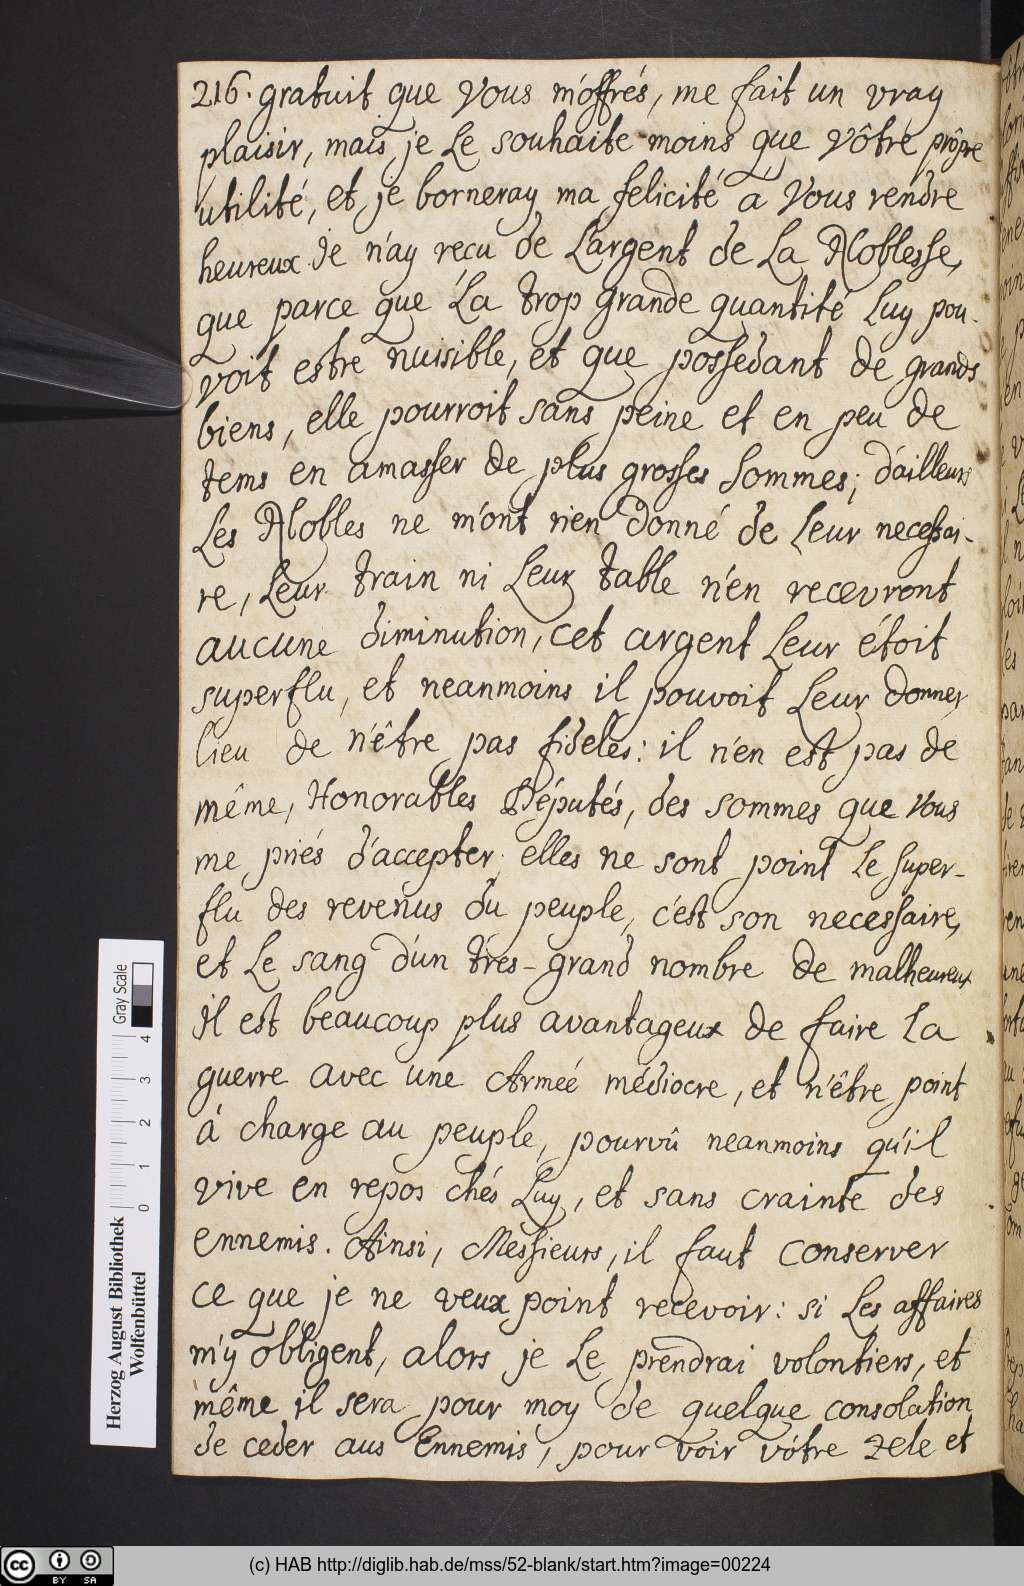 216. gratuit que Vous m'offrés, me fait un vray
plaisir, mais je Le souhaite moins que Vôtre prôpre
utilité, et je borneray ma felicité á Vous rendre
heureux. Je n'ay recu de L'argent de La Noblesse,
que parce que La trop grande quantité Luy pou-
voit estre nuisible, et que possedant de grands
biens, elle pourroit sans peine et en peu de
tems en amasser de plus grosses Sommes; d'ailleurs
Les Nobles ne m'ont rien donné de Leur necessai-
re, Leur train ni Leur table n'en recevront
aucune diminution, cet argent Leur étoit
superflu, et neanmoins il pouvoit Leur donner
lieu de n'être pas fideles: il n'en est pas de
même, Honorables Députés, des sommes que Vous
me priés d'accepter, elles ne sont point Le super-
flu des revenus du peuple, c'est son necessaire,
et Le sang d'un tres-grand nombre de malheureux
Il est beaucoup plus avantageux de faire La
guerre avec une Armeé médiocre, et n'être point
á charge au peuple, pourvû neanmoins qu'il
vive en repos chés Luy, et sans crainte des
ennemis. Ainsi, Messieurs, il faut conserver
ce que je ne veux point recevoir: si Les affaires
m'y obligent, alors je Le prendrai volontiers, et
même il sera pour moy de quelque consolation
de ceder aus Ennemis, pour voir vótre zele et
Gray Scale
0 1 2 3 4
Herzog August Bibliothek
Wolfenbüttel
cc BY SA
(c) HAB http://diglib.hab.de/mss/52-blank/start.htm?image=00224